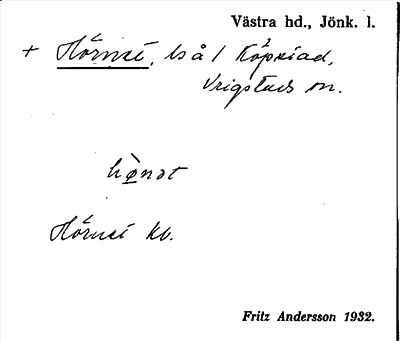 Västra hd., Jönk. l.
+ Hörnet, ls å 1 Köpstad,
Vrigstads sn.
hø̀nət
Hörnet kb.
Fritz Andersson 1932.